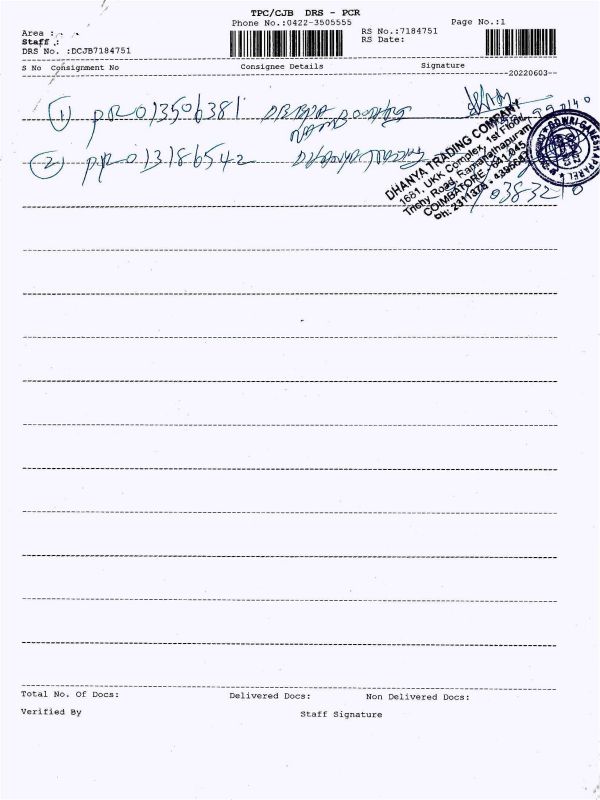 TPC/CJB DRS - PCR
Phone No.:0422-3505555
Page No.:1
Area :
Staff :
DRS No. :DCJB7184751
RS No.:7184751
RS Date:
S No Consignment No Consignee Details Signature
--20220603--
1 PRO13506381
2 PRO13186542
DHANYA TRADING COMPANY
1681, UKK Complex, 1st Floor,
Trichy Road, Ramanathapuram
COIMBATORE - 641 045.
Ph: 2311375
GOWRI GANESH APPARELS
Total No. Of Docs: Delivered Docs: Non Delivered Docs:
Verified By Staff Signature